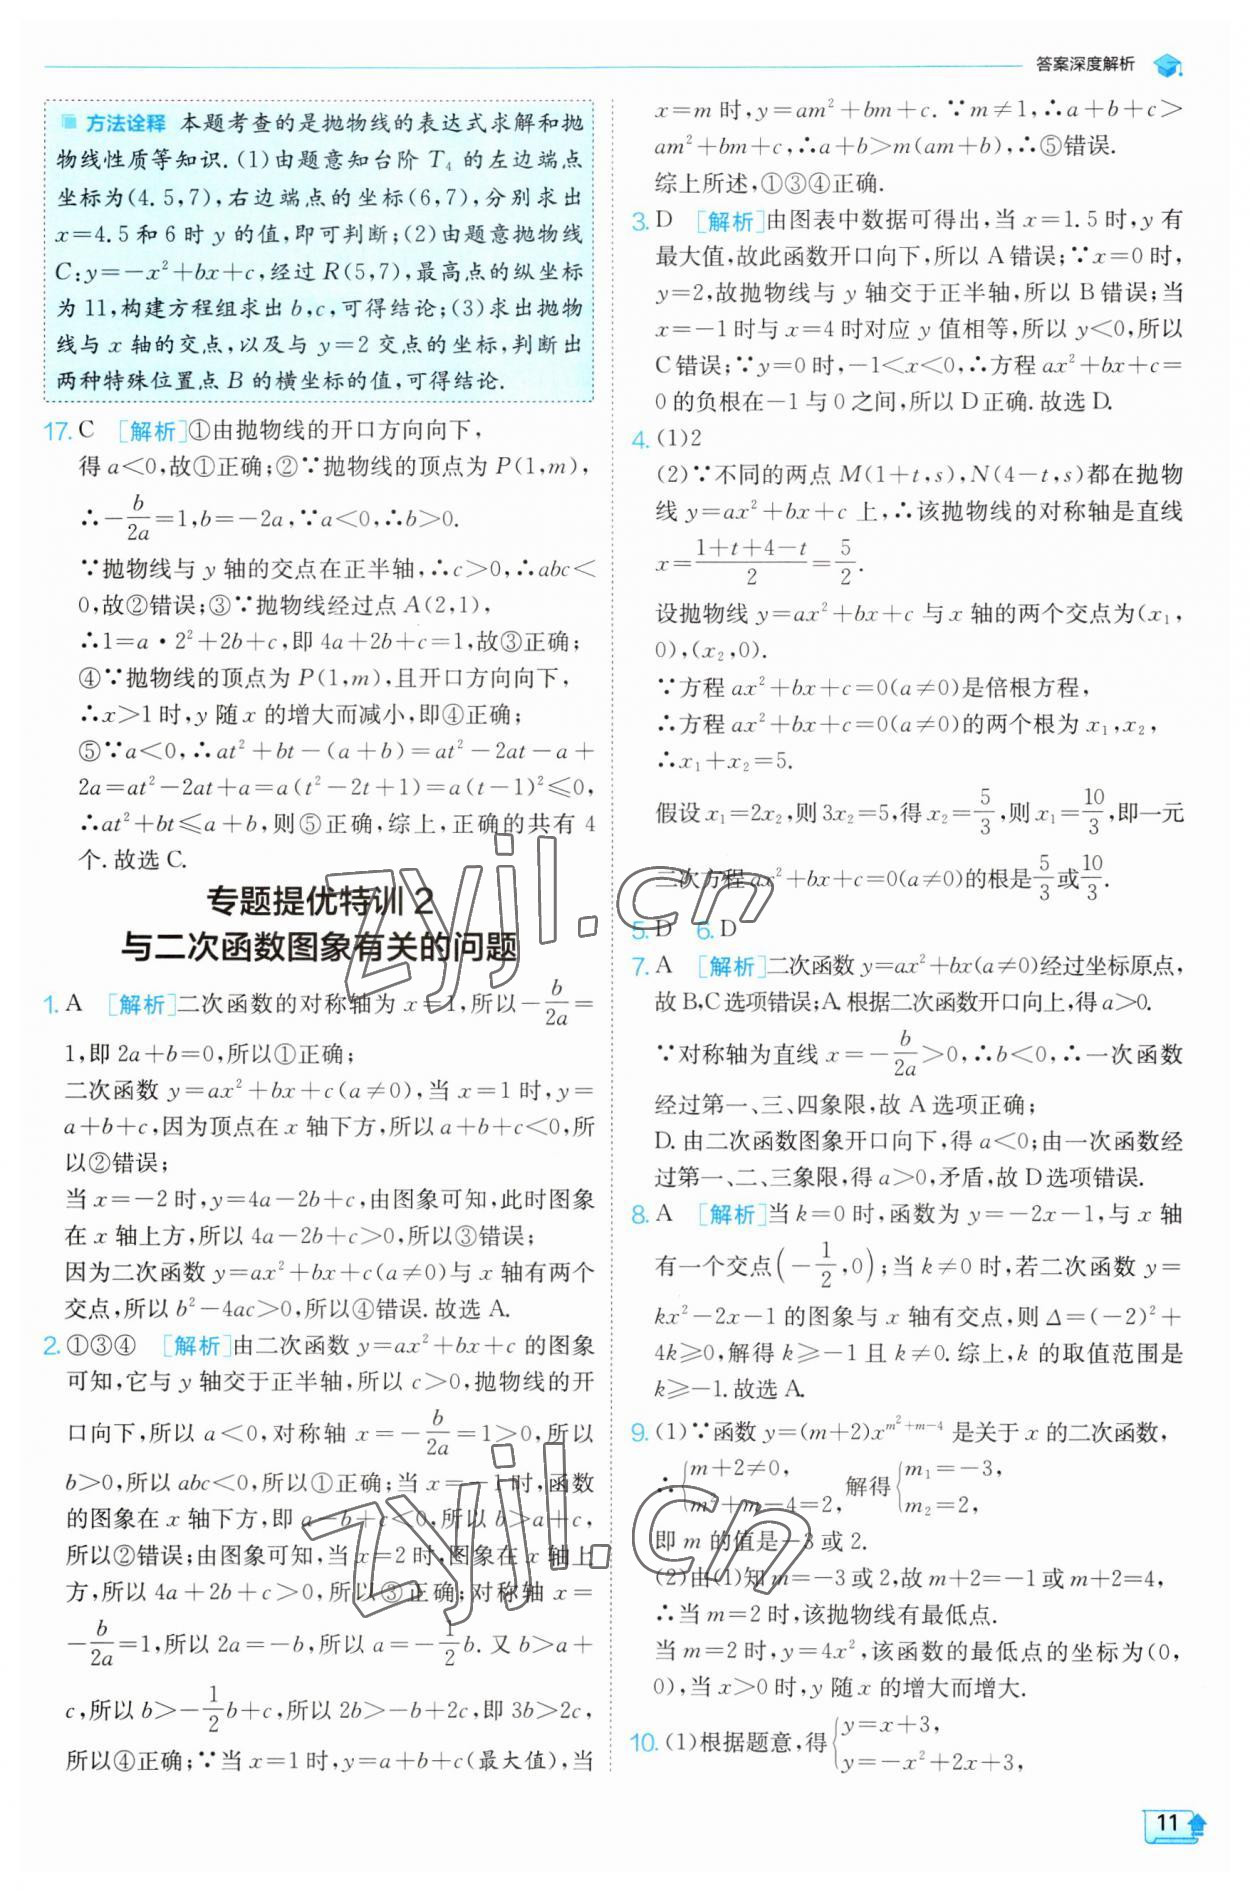 答案深度解析
方法诠释 本题考查的是抛物线的表达式求解和抛
物线性质等知识.(1)由题意知台阶 T₄ 的左边端点
坐标为(4.5,7),右边端点的坐标(6,7),分别求出
x=4.5 和 6 时 y 的值,即可判断;(2)由题意抛物线
C:y=-x²+bx+c,经过 R(5,7),最高点的纵坐标
为 11,构建方程组求出 b,c,可得结论;(3)求出抛物
线与 x 轴的交点,以及与 y=2 交点的坐标,判断出
两种特殊位置点 B 的横坐标的值,可得结论.
17. C [解析]①由抛物线的开口方向向下,
得 a<0,故①正确;②∵抛物线的顶点为 P(1,m),
∴-b/2a=1,b=-2a,∵a<0,∴b>0.
∵抛物线与 y 轴的交点在正半轴,∴c>0,∴abc<
0,故②错误;③∵抛物线经过点 A(2,1),
∴1=a·2²+2b+c,即 4a+2b+c=1,故③正确;
④∵抛物线的顶点为 P(1,m),且开口方向向下,
∴x>1 时,y 随 x 的增大而减小,即④正确;
⑤∵a<0,∴at²+bt-(a+b)=at²-2at-a+
2a=at²-2at+a=a(t²-2t+1)=a(t-1)²≤0,
∴at²+bt≤a+b,则⑤正确,综上,正确的共有 4
个.故选 C.
专题提优特训 2
与二次函数图象有关的问题
1. A [解析]二次函数的对称轴为 x=1,所以-b/2a=
1,即 2a+b=0,所以①正确;
二次函数 y=ax²+bx+c(a≠0),当 x=1 时,y=
a+b+c,因为顶点在 x 轴下方,所以 a+b+c<0,所
以②错误;
当 x=-2 时,y=4a-2b+c,由图象可知,此时图象
在 x 轴上方,所以 4a-2b+c>0,所以③错误;
因为二次函数 y=ax²+bx+c(a≠0)与 x 轴有两个
交点,所以 b²-4ac>0,所以④错误.故选 A.
2. ①③④ [解析]由二次函数 y=ax²+bx+c 的图象
可知,它与 y 轴交于正半轴,所以 c>0,抛物线的开
口向下,所以 a<0,对称轴 x=-b/2a=1>0,所以
b>0,所以 abc<0,所以①正确;当 x=-1 时,函数
的图象在 x 轴下方,即 a-b+c<0,所以 b>a+c,
所以②错误;由图象可知,当 x=2 时,图象在 x 轴上
方,所以 4a+2b+c>0,所以③正确;对称轴 x=
-b/2a=1,所以 2a=-b,所以 a=-1/2b.又 b>a+
c,所以 b>-1/2b+c,所以 2b>-b+2c,即 3b>2c,
所以④正确;∵当 x=1 时,y=a+b+c(最大值),当
x=m 时,y=am²+bm+c.∵m≠1,∴a+b+c>
am²+bm+c,∴a+b>m(am+b),∴⑤错误.
综上所述,①③④正确.
3. D [解析]由图表中数据可得出,当 x=1.5 时,y 有
最大值,故此函数开口向下,所以 A 错误;∵x=0 时,
y=2,故抛物线与 y 轴交于正半轴,所以 B 错误;当
x=-1 时与 x=4 时对应 y 值相等,所以 y<0,所以
C 错误;∵y=0 时,-1<x<0,∴方程 ax²+bx+c=
0 的负根在-1 与 0 之间,所以 D 正确.故选 D.
4. (1)2
(2)∵不同的两点 M(1+t,s),N(4-t,s)都在抛物
线 y=ax²+bx+c 上,∴该抛物线的对称轴是直线
x=(1+t+4-t)/2=5/2.
设抛物线 y=ax²+bx+c 与 x 轴的两个交点为(x₁,
0),(x₂,0).
∵方程 ax²+bx+c=0(a≠0)是倍根方程,
∴方程 ax²+bx+c=0(a≠0)的两个根为 x₁,x₂,
∴x₁+x₂=5.
假设 x₁=2x₂,则 3x₂=5,得 x₂=5/3,则 x₁=10/3,即一元
二次方程 ax²+bx+c=0(a≠0)的根是5/3或10/3.
5. D 6. D
7. A [解析]二次函数 y=ax²+bx(a≠0)经过坐标原点,
故 B,C 选项错误;A.根据二次函数开口向上,得 a>0.
∵对称轴为直线 x=-b/2a>0,∴b<0,∴一次函数
经过第一、三、四象限,故 A 选项正确;
D.由二次函数图象开口向下,得 a<0;由一次函数经
过第一、二、三象限,得 a>0,矛盾,故 D 选项错误.
8. A [解析]当 k=0 时,函数为 y=-2x-1,与 x 轴
有一个交点(-1/2,0);当 k≠0 时,若二次函数 y=
kx²-2x-1 的图象与 x 轴有交点,则 Δ=(-2)²+
4k≥0,解得 k≥-1 且 k≠0.综上,k 的取值范围是
k≥-1.故选 A.
9. (1)∵函数 y=(m+2)x^{m²+m-4} 是关于 x 的二次函数,
∴{m+2≠0, m²+m-4=2, 解得{m₁=-3, m₂=2,
即 m 的值是-3 或 2.
(2)由(1)知 m=-3 或 2,故 m+2=-1 或 m+2=4,
∴当 m=2 时,该抛物线有最低点.
当 m=2 时,y=4x²,该函数的最低点的坐标为(0,
0),当 x>0 时,y 随 x 的增大而增大.
10. (1)根据题意,得{y=x+3, y=-x²+2x+3,
11
zyjl.cn
zyjl.cn